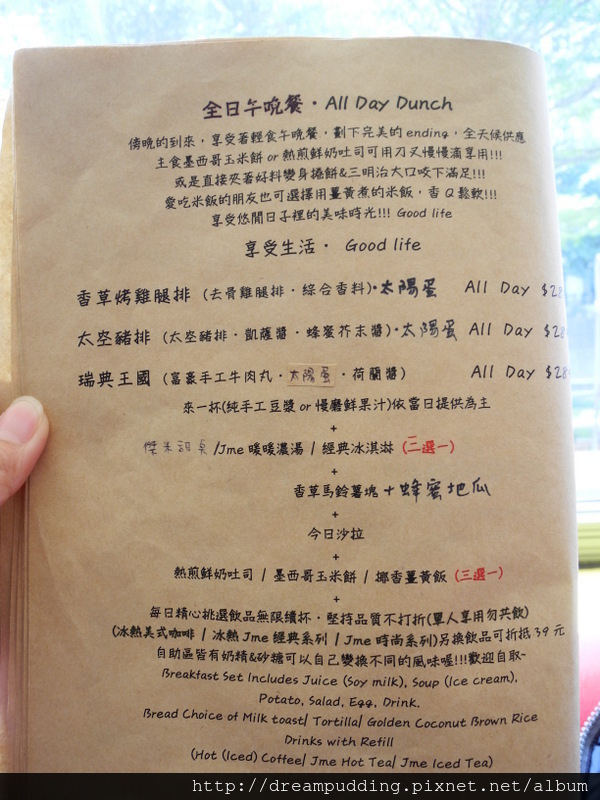 全日午晩餐・All Day Dunch
傍晚的到來，享受著輕食午晚餐，劃下完美的 ending，全天候供應
主食墨西哥玉米餅 or 熱煎鮮奶吐司可用刀叉慢慢滴享用!!!
或是直接夾著好料變身捲餅&三明治大口咬下滿足!!!
愛吃米飯的朋友也可選擇用薑黃煮的米飯，香Q鬆軟!!!
享受悠閒日子裡的美味時光!!! Good life
享受生活・ Good life
香草烤雞腿排 (去骨雞腿排・綜合香料)・太陽蛋 All Day $28
太空豬排 (太空豬排・凱薩醬・蜂蜜芥末醬)・太陽蛋 All Day $28
瑞典王國 (富豪手工牛肉丸・太陽蛋・荷蘭醬) All Day $28
來一杯(純手工豆漿 or 慢磨鮮果汁)依當日提供為主
+
/Jme 暖暖濃湯 / 經典冰淇淋 (二選一)
+
香草馬鈴薯塊 + 蜂蜜地瓜
+
今日沙拉
+
熱煎鮮奶吐司 / 墨西哥玉米餅 / 椰香薑黃飯 (三選一)
+
每日精心挑選飲品無限續杯・堅持品質不打折(單人享用勿共飲)
(冰熱美式咖啡 / 冰熱 Jme 經典系列 / Jme 時尚系列)另換飲品可折抵 39 元
自助區皆有奶精&砂糖可以自己變換不同的風味喔!!!歡迎自取~
Breakfast Set Includes Juice (Soy milk), Soup (Ice cream),
Potato, Salad, Egg, Drink.
Bread Choice of Milk toast/ Tortilla/ Golden Coconut Brown Rice
Drinks with Refill
(Hot (Iced) Coffee/ Jme Hot Tea/ Jme Iced Tea)
http://dreampudding.pixnet.net/album